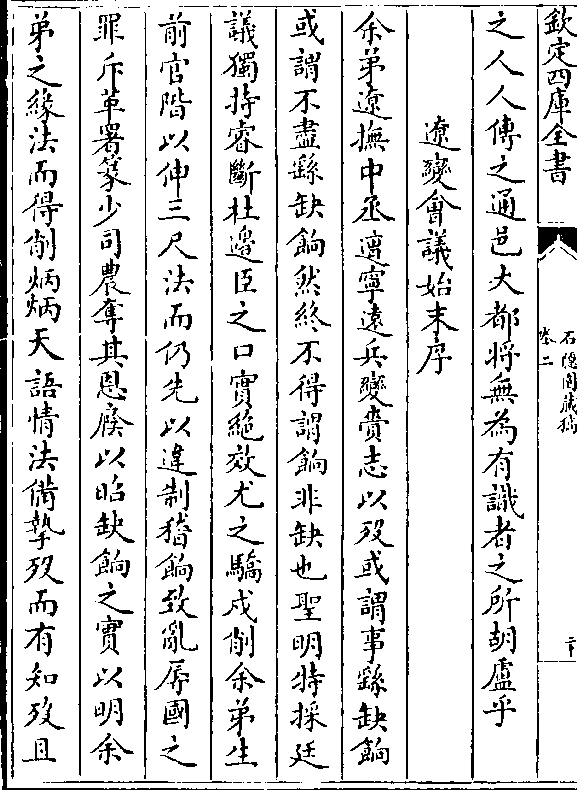 欽定四庫全書
石隱園藏稿
卷二
二十
之人人傳之通邑大都將無為有識者之所胡盧乎
遼變會議始末序
余弟遼撫中丞邅寧遠兵變賫志以歿或謂事繇缺餉
或謂不盡繇缺餉然終不得謂餉非缺也聖明特採廷
議獨持睿斷杜邊臣之口實絶效尤之驕戍削余弟生
前官階以伸三尺法而仍先以違制稽餉致亂辱國之
罪斥革署篆少司農奪其恩廕以昭缺餉之實以明余
弟之緣法而得削炳炳天語情法備摯歿而有知歿且